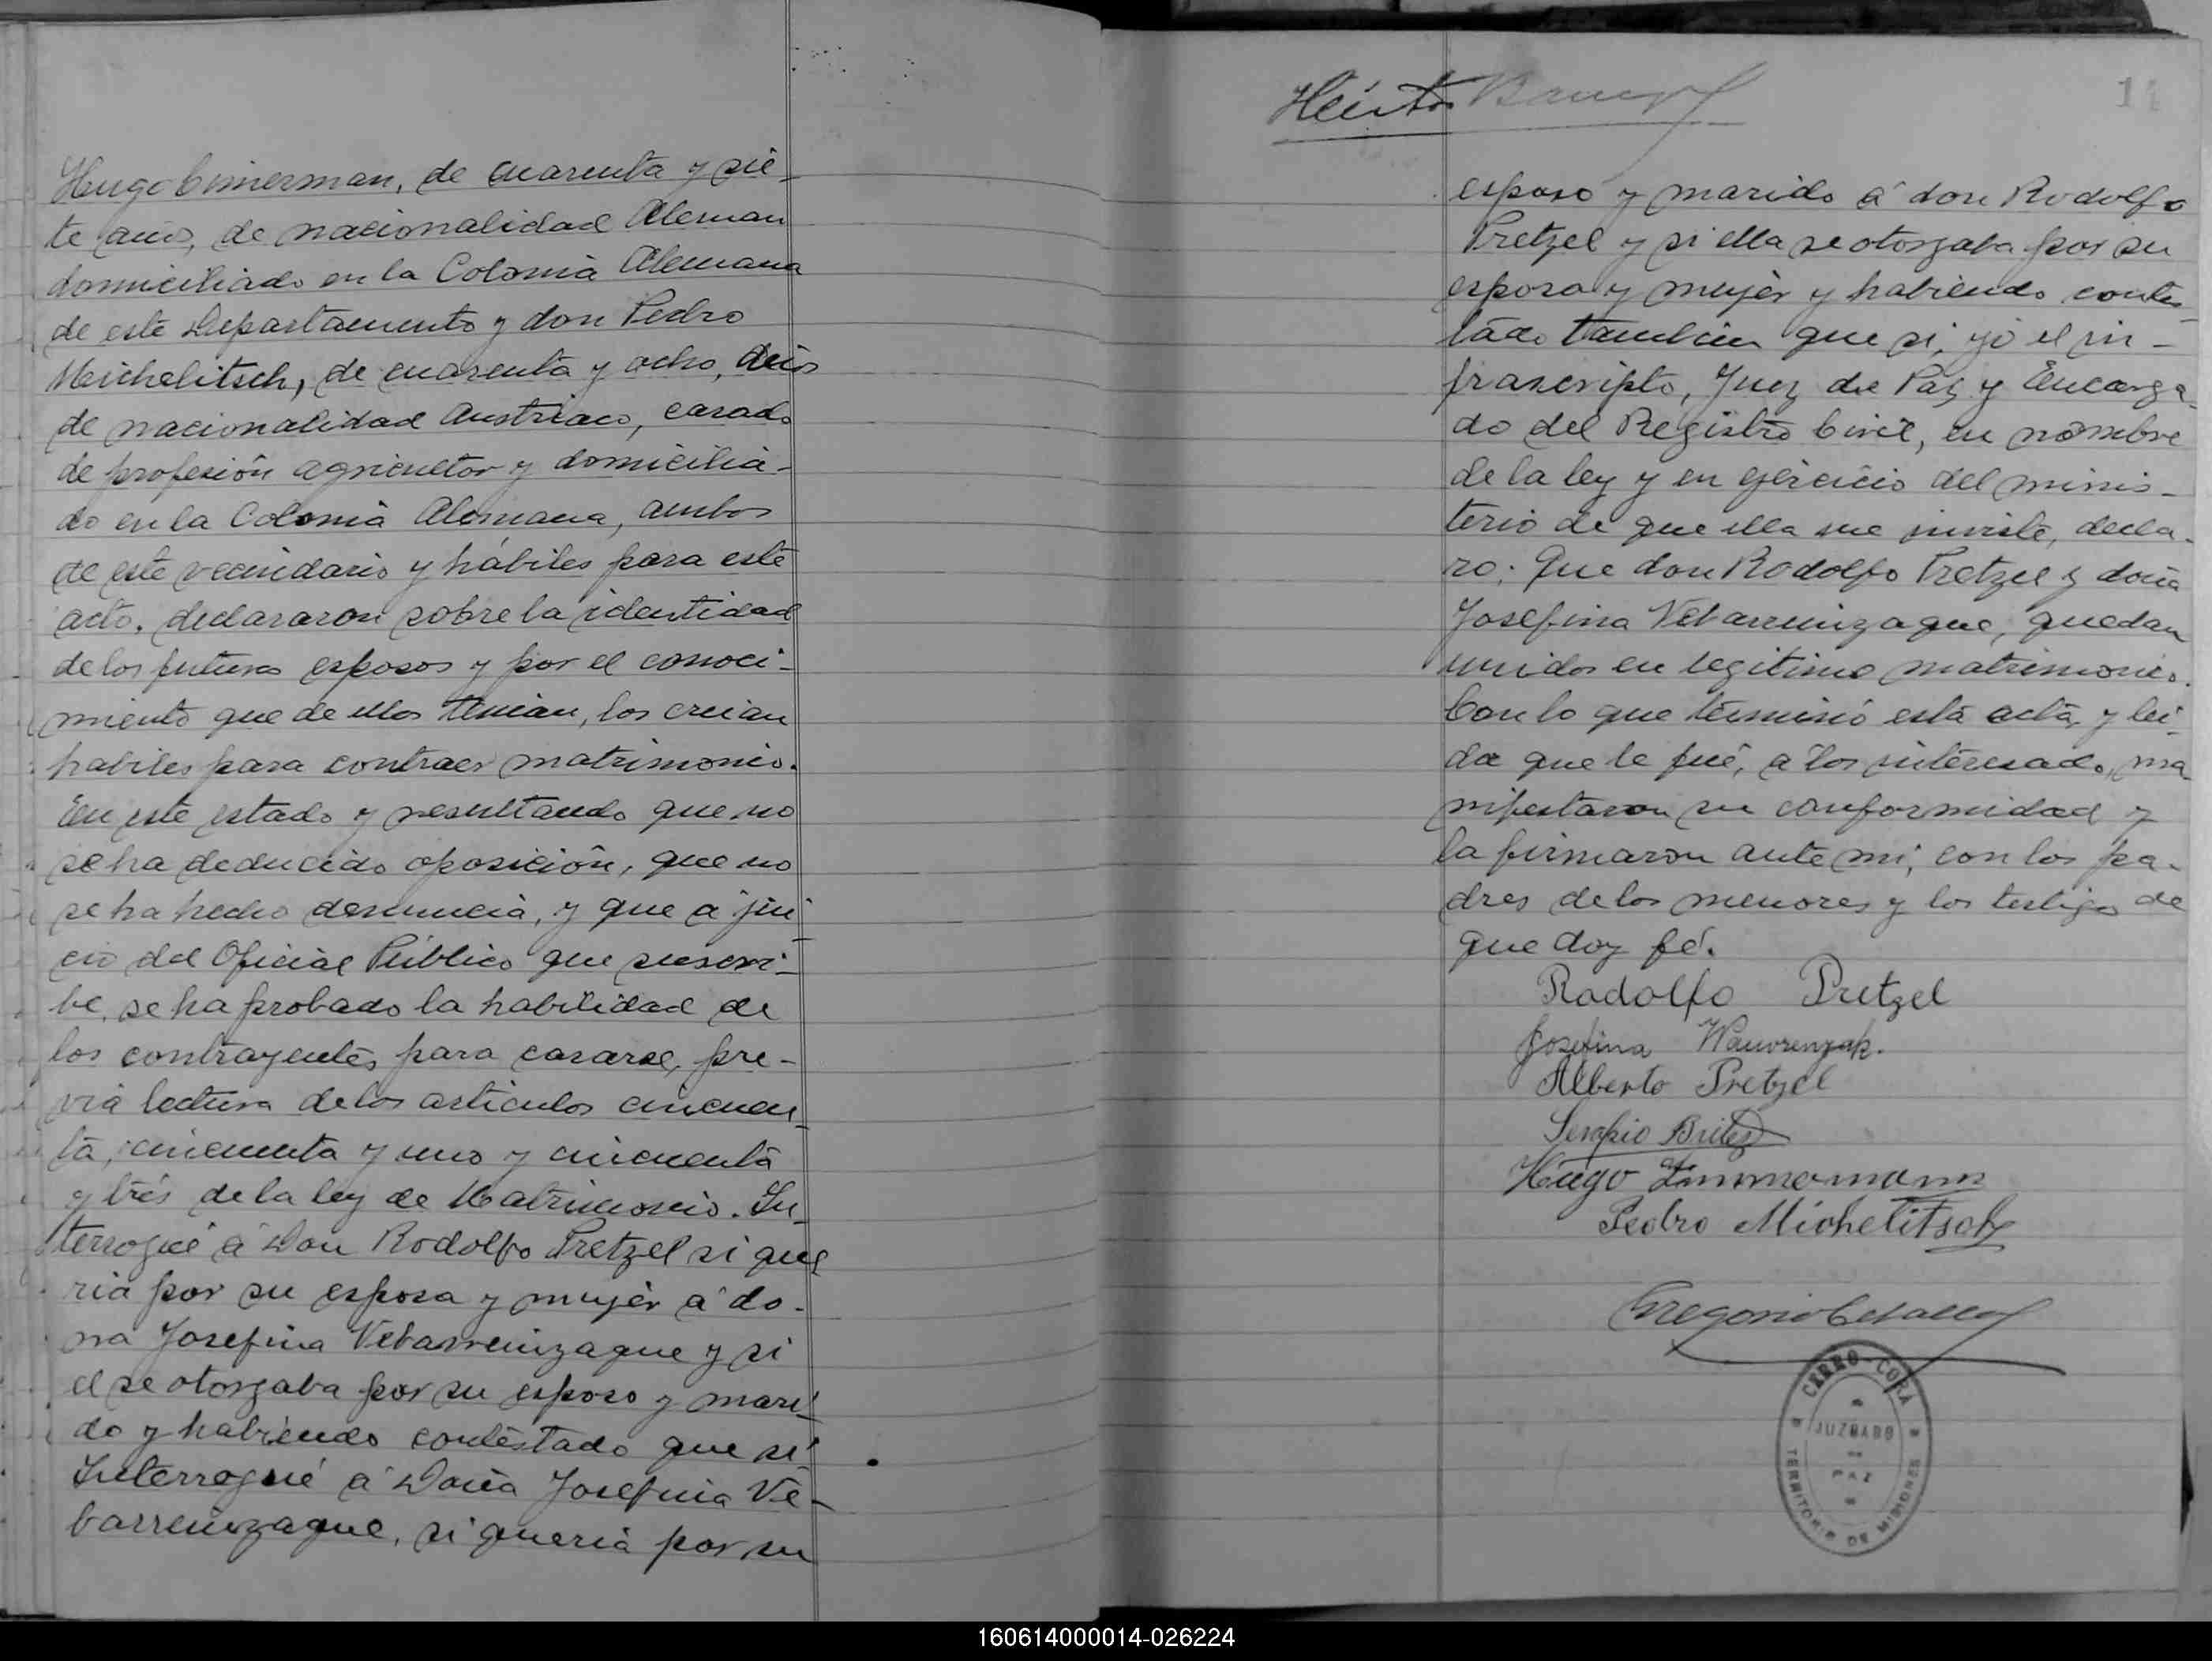 Hugo Cimerman, de cuarenta y sie-
te años, de nacionalidad Aleman
domiciliado en la Colonia Alemana
de este Departamento y don Pedro
Michelitsch, de cuarenta y ocho, años
de nacionalidad Austriaco, casado
de profesión agricultor y domicilia-
do en la Colonia Alemana, ambos
de este vecindario y hábiles para este
acto. declararon sobre la identidad
de los futuros esposos y por el conoci-
miento que de ellos tenian, los creian
habiles para contraer matrimonio.
En este estado y resultando que no
se ha deducido oposición, que no
se ha hecho denuncia, y que a jui-
cio del Oficial Público que suscri-
be, se ha probado la habilidad de
los contrayentes para casarse, pre-
via lectura de los articulos cincuen-
ta, cincuenta y uno y cincuenta
y trés de la ley de Matrimonio. In-
terrogué á Don Rodolfo Pretzel si que
ria por su esposa y mujer á do-
na Josefina Vebarreinzaque y si
el se otorgaba por su esposo y mari-
do y habiendo contestado que si
Interrogué á Doña Josefina Ve-
barreinzaque, si queria por su
Héctor
11
esposo y marido á don Rodolfo
Pretzel y si ella se otorgaba por su
esposa y mujer y habiendo contes
tado tambien que si, yo el in-
frascripto, Juez de Paz y Encarga
do del Registro Civil, en nombre
de la ley y en ejercicio del minis-
terio de que ella me inviste, decla-
ro: Que don Rodolfo Pretzel y doña
Josefina Vebarreinzaque, quedan
unidos en legitimo matrimonio.
Con lo que terminó esta acta y lei-
da que le fué, a los interesado, ma
nifestaron su conformidad y
la firmaron ante mi, con los pa-
dres de los menores y los testigos de
que doy fé.
Rodolfo Pretzel
Josefina Wawrenzak.
Alberto Pretzel
Serapio Britez
Hugo Zimmermann
Pedro Michelitsch
Gregorio Ceballos
CERRO-CORÁ
JUZGADO
DE
PAZ
TERRITORIO DE MISIONES
160614000014-026224